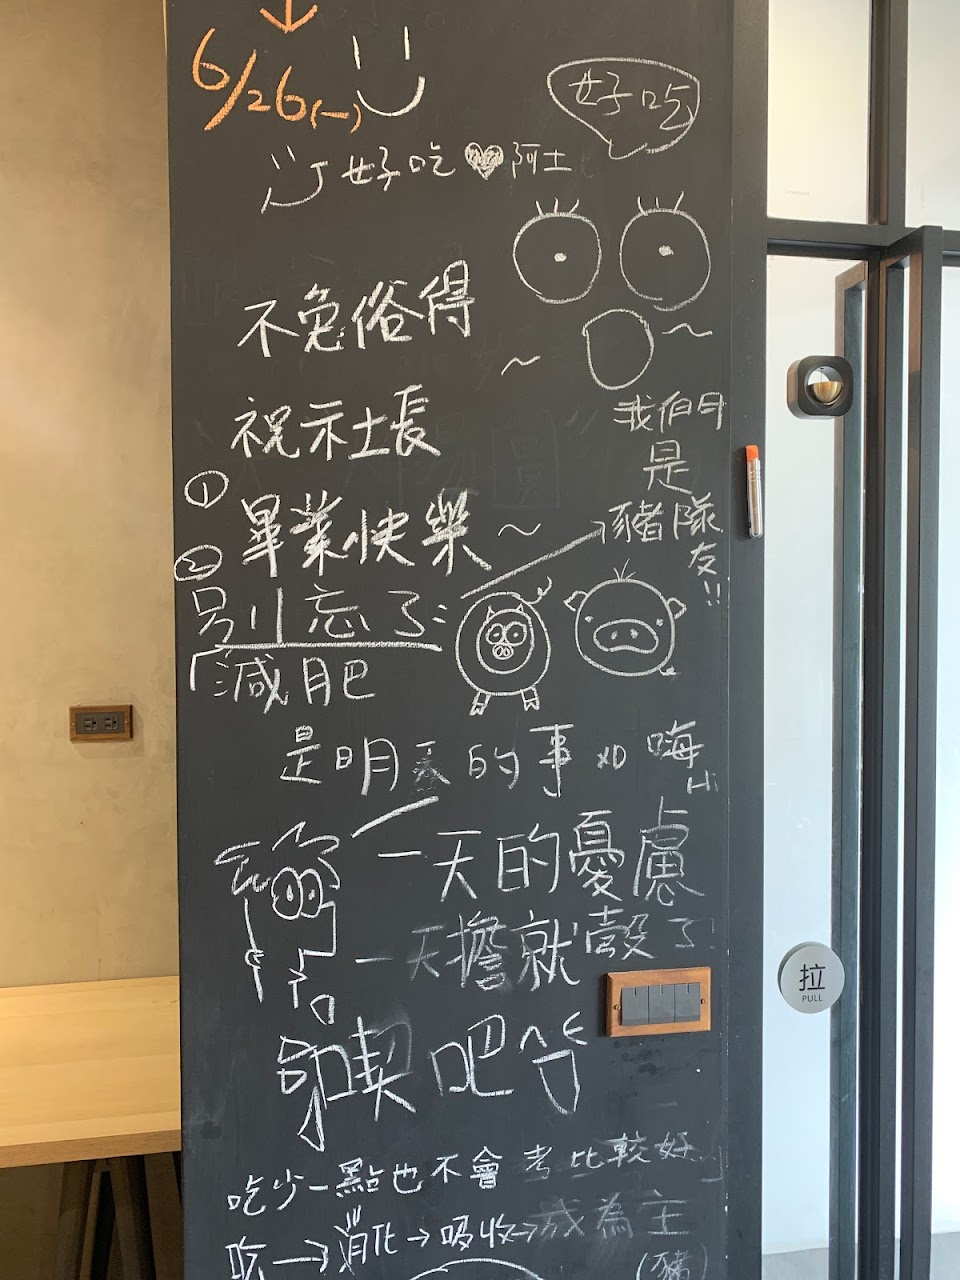 6/26(一)
好吃
好吃♥阿土
不免俗得
祝示社長
① 畢業快樂~
我們
是
豬隊
友!!
② 別忘了:
減肥
是明天的事 XD 嗨
Hi
一天的憂慮
一天擔就殼了
喫吧
吃少一點也不會考比較好
吃→消化→吸收→成為主
(豬)
拉
PULL